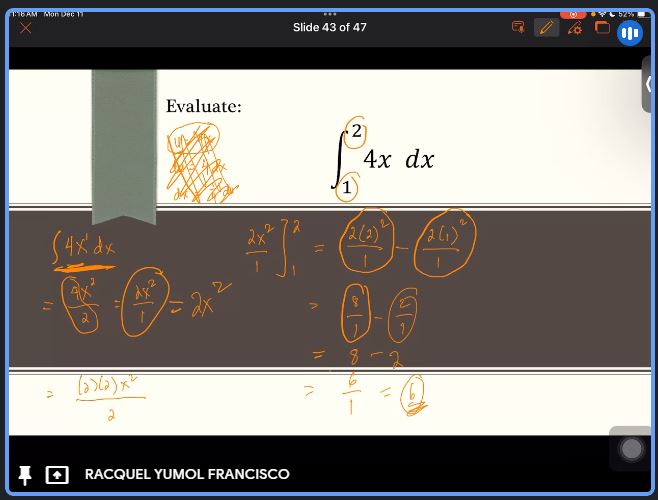 11:16 AM Mon Dec 11
52%
Slide 43 of 47
Evaluate:
∫₁² 4x dx
∫ 4x¹ dx
2x²/1 ]₁² = 2(2)²/1 - 2(1)²/1
= 4x²/2 = 2x²/1 = 2x²
= 8/1 - 2/1
= 8 - 2
= (2)(2)x²/2
= 6/1 = 6
RACQUEL YUMOL FRANCISCO